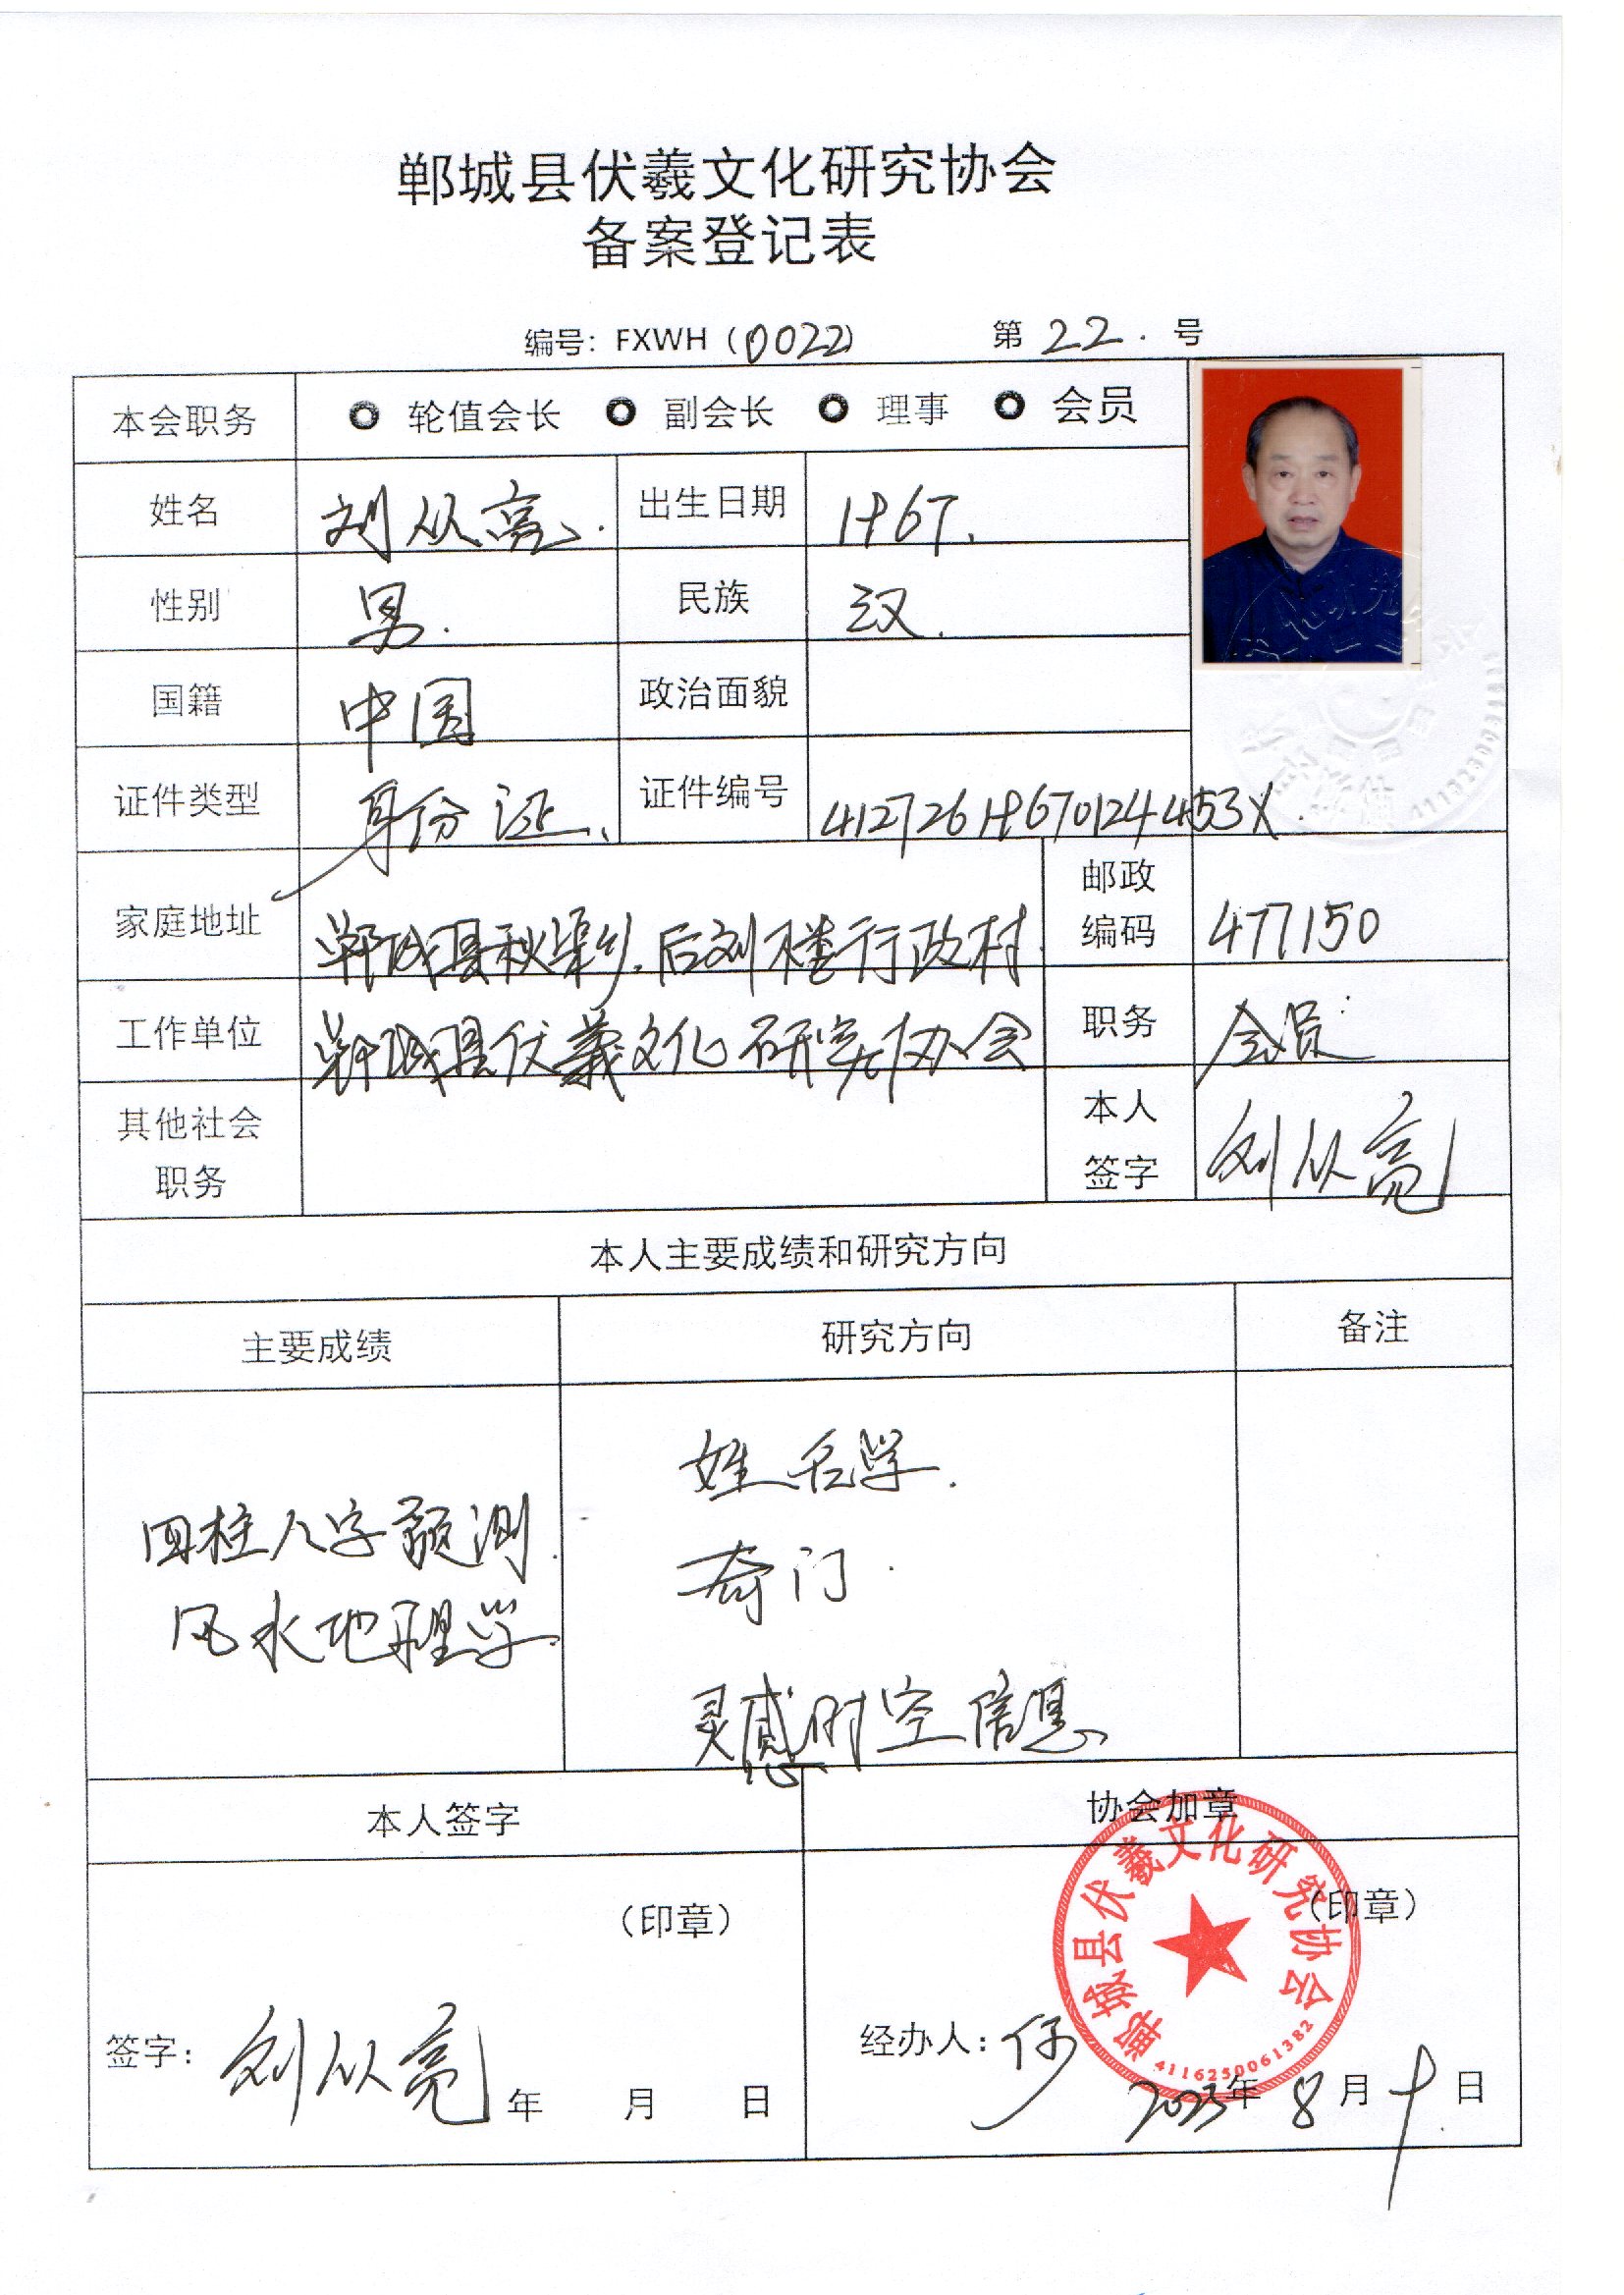 郸城县伏羲文化研究协会
备案登记表
编号：FXWH（0022） 第 22. 号
本会职务 轮值会长 副会长 理事 会员
姓名 刘从亮. 出生日期 1967.
性别 男. 民族 汉.
国籍 中国 政治面貌
证件类型 身份证、 证件编号 41272619670124453X.
家庭地址 郸城县秋渠乡.后刘楼行政村. 邮政编码 477150
工作单位 郸城县伏羲文化研究协会 职务 会员
其他社会职务 本人签字 刘从亮
本人主要成绩和研究方向
主要成绩 研究方向 备注
四柱八字预测.
风水地理学.
姓名学.
奇门.
灵感时空信息、
本人签字 协会加章
（印章） （印章）
签字： 刘从亮 年 月 日
经办人：
2023年 8月 日
郸城县伏羲文化研究协会
4116250061382